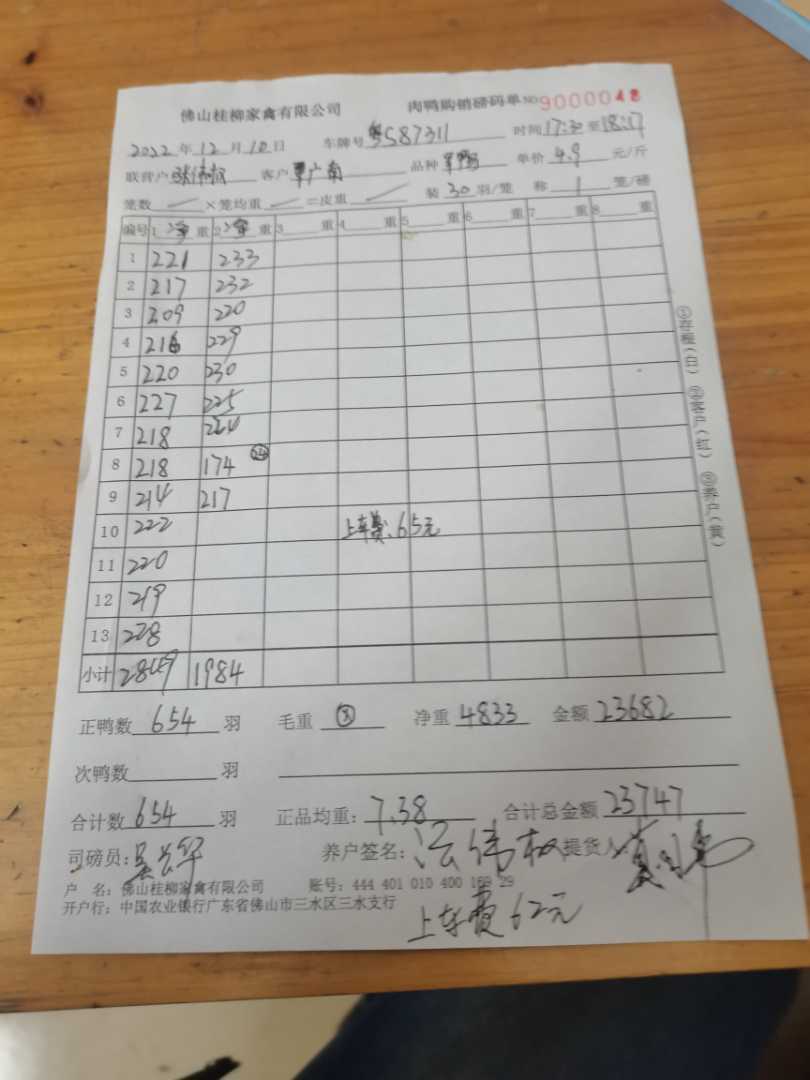 佛山桂柳家禽有限公司 肉鸭购销磅码单 NO 9000048
2022年12月10日 车牌号 粤S87311 时间 17:30至18:17
联营户 客户 覃广南 品种 单价 4.9 元/斤
笼数 ×笼均重 =皮重 装 30 羽/笼 称 1 笼/磅
编号 1 净 重 2 净 重 3 重 4 重 5 重 6 重 7 重 8 重
1 221 233
2 217 232
3 209 220
4 216 229
5 220 230
6 227 225
7 218 224
8 218 174 24
9 214 217
10 222 上车费、65元
11 220
12 219
13 228
小计 2849 1984
正鸭数 654 羽 毛重 ⑧ 净重 4833 金额 23682
次鸭数 羽
合计数 654 羽 正品均重: 7.38 合计总金额 23747
司磅员: 养户签名: 伟权 提货人
户 名: 佛山桂柳家禽有限公司 账号: 444 401 010 400 169 29
开户行: 中国农业银行广东省佛山市三水区三水支行
上车费 62元
①存根(白) ②客户(红) ③养户(黄)